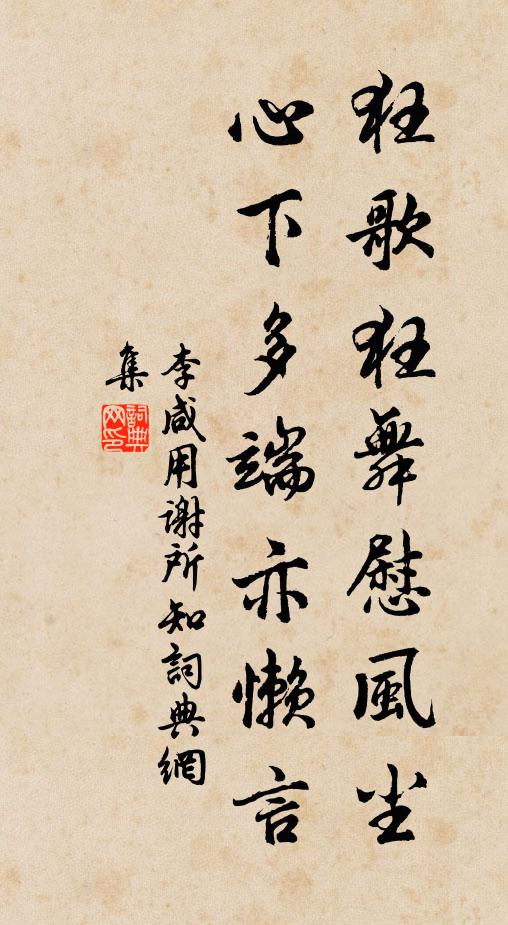 狂歌狂舞慰風尘
心下多端亦懒言
李咸用谢所知詞典網
集
詞典网印